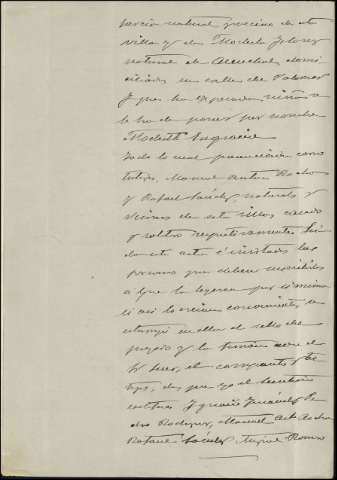 García natural y vecino de esta
villa y de Modesta Flores
natural de Aceuchal, domi
ciliados en calle de Palomas
Y que la expresada niña se
le ha de poner por nombre
Modesta Engracia
Todo lo cual presenciaron como
testigos, Manuel Antonio
y Rafael naturales y
vecinos de esta villa casado
y soltero respectivamente. Leí
da esta acta é invitadas las
personas que deben suscribirla
a que la leyeran por sí mismas
si así lo creían conveniente, se
estampó en ella el sello del
juzgado y la firmaron con el
Sr Juez, el compareciente y tes
tigos, de que yo el Secretario
certifico Ignacio Pe
dro Rodríguez, Manuel Ant
Rafael Miguel Romero